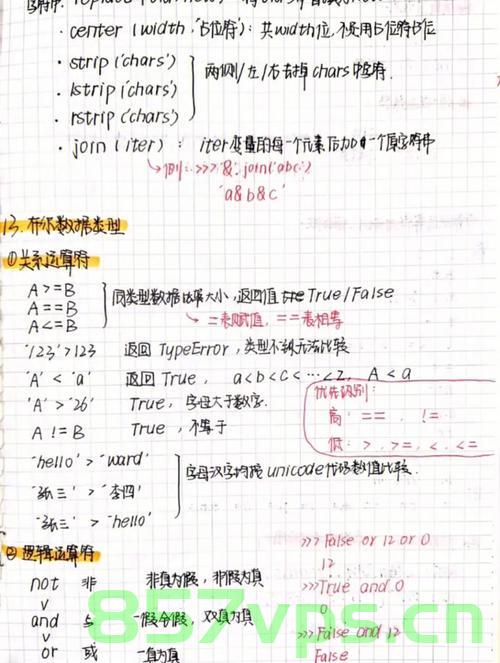 · center (width, '占位符'): 共width位,不足用占位符占位
· strip('chars')
· lstrip('chars')
· rstrip('chars')
两侧/左/右去掉chars中字符.
· join(iter): iter变量的每一个元素后加一个原字符串
例: >>> '&'.join('abc')
'a&b&c'
13. 布尔数据类型
①关系运算符
A >= B
A == B
A <= B
同类型数据比较大小,返回值 True/False
= 表赋值, == 表相等
'123' > 123 返回 TypeError, 类型不统无法比较
'A' < 'a' 返回 True, a<b<c<…<z. A < a
'A' > '26' True, 字母大于数字.
A != B True, 不等于
优先级别:
高: ==, !=
低: >, >=, <, <=
'hello' > 'ward'
'张三' > '李四'
'张三' > 'hello'
字母汉字均按unicode代码数值比较.
②逻辑运算符
not 非 非真为假, 非假为真
and 与 一假为假, 双真为真
or 或 一真为真
>>> False or 12 or 0
12
>>> True and 0
0
>>> False and 12
False
857vps.cn